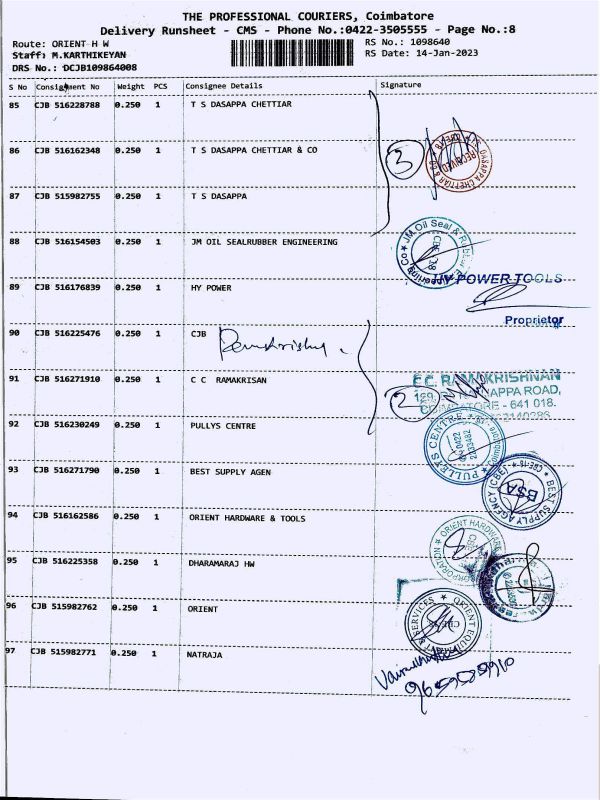 THE PROFESSIONAL COURIERS, Coimbatore
Delivery Runsheet - CMS - Phone No.:0422-3505555 - Page No.:8
Route: ORIENT H W
RS No.: 1098640
Staff: M.KARTHIKEYAN
RS Date: 14-Jan-2023
DRS No.: DCJB109864008
S No Consignment No Weight PCS Consignee Details Signature
85 CJB 516228788 0.250 1 T S DASAPPA CHETTIAR
86 CJB 516162348 0.250 1 T S DASAPPA CHETTIAR & CO
3
RECEIVED
DASAPPA CHETTIAR &
87 CJB 515982755 0.250 1 T S DASAPPA
88 CJB 516154503 0.250 1 JM OIL SEALRUBBER ENGINEERING
JM Oil Seal & Rubber
89 CJB 516176839 0.250 1 HY POWER
HY POWER TOOLS
Proprietor
90 CJB 516225476 0.250 1 CJB
Ramakrishn
91 CJB 516271910 0.250 1 C C RAMAKRISAN
C.C. RAMAKRISHNAN
APPA ROAD,
COIMBATORE - 641 018.
2
92 CJB 516230249 0.250 1 PULLYS CENTRE
PULLEYS CENTRE
93 CJB 516271790 0.250 1 BEST SUPPLY AGEN
BEST SUPPLY AGENCY
BSA
94 CJB 516162586 0.250 1 ORIENT HARDWARE & TOOLS
ORIENT HARDWARE
CORPORATION
95 CJB 516225358 0.250 1 DHARAMARAJ HW
96 CJB 515982762 0.250 1 ORIENT
ORIENT EQUIPMENT & SERVICES
97 CJB 515982771 0.250 1 NATRAJA